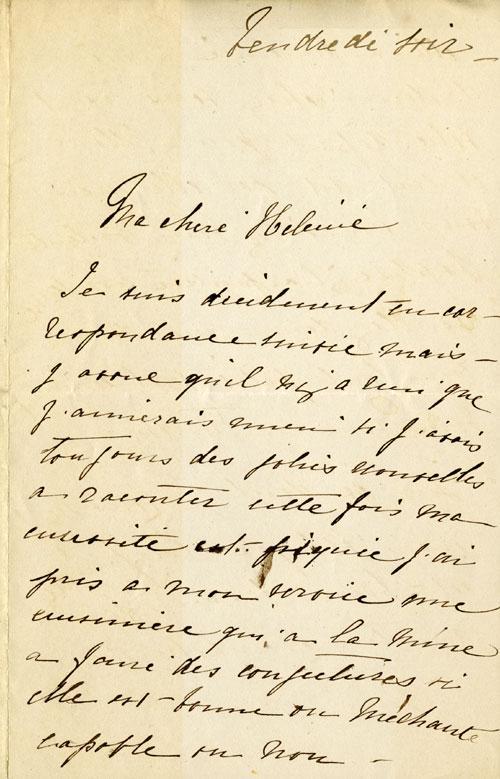 Vendredi soir
Ma chere Helene
Je suis decidement en cor-
respondance suivie mais
j'avoue qu'il n'y a rien que
j'aimerais mieux si j'avais
toujours des jolies nouvelles
a raconter cette fois ma
curiosité est piquée j'ai
pris a mon service une
cuisiniere qui a la mine
a faire des conjectures si
elle est bonne ou méchante
capable ou non -